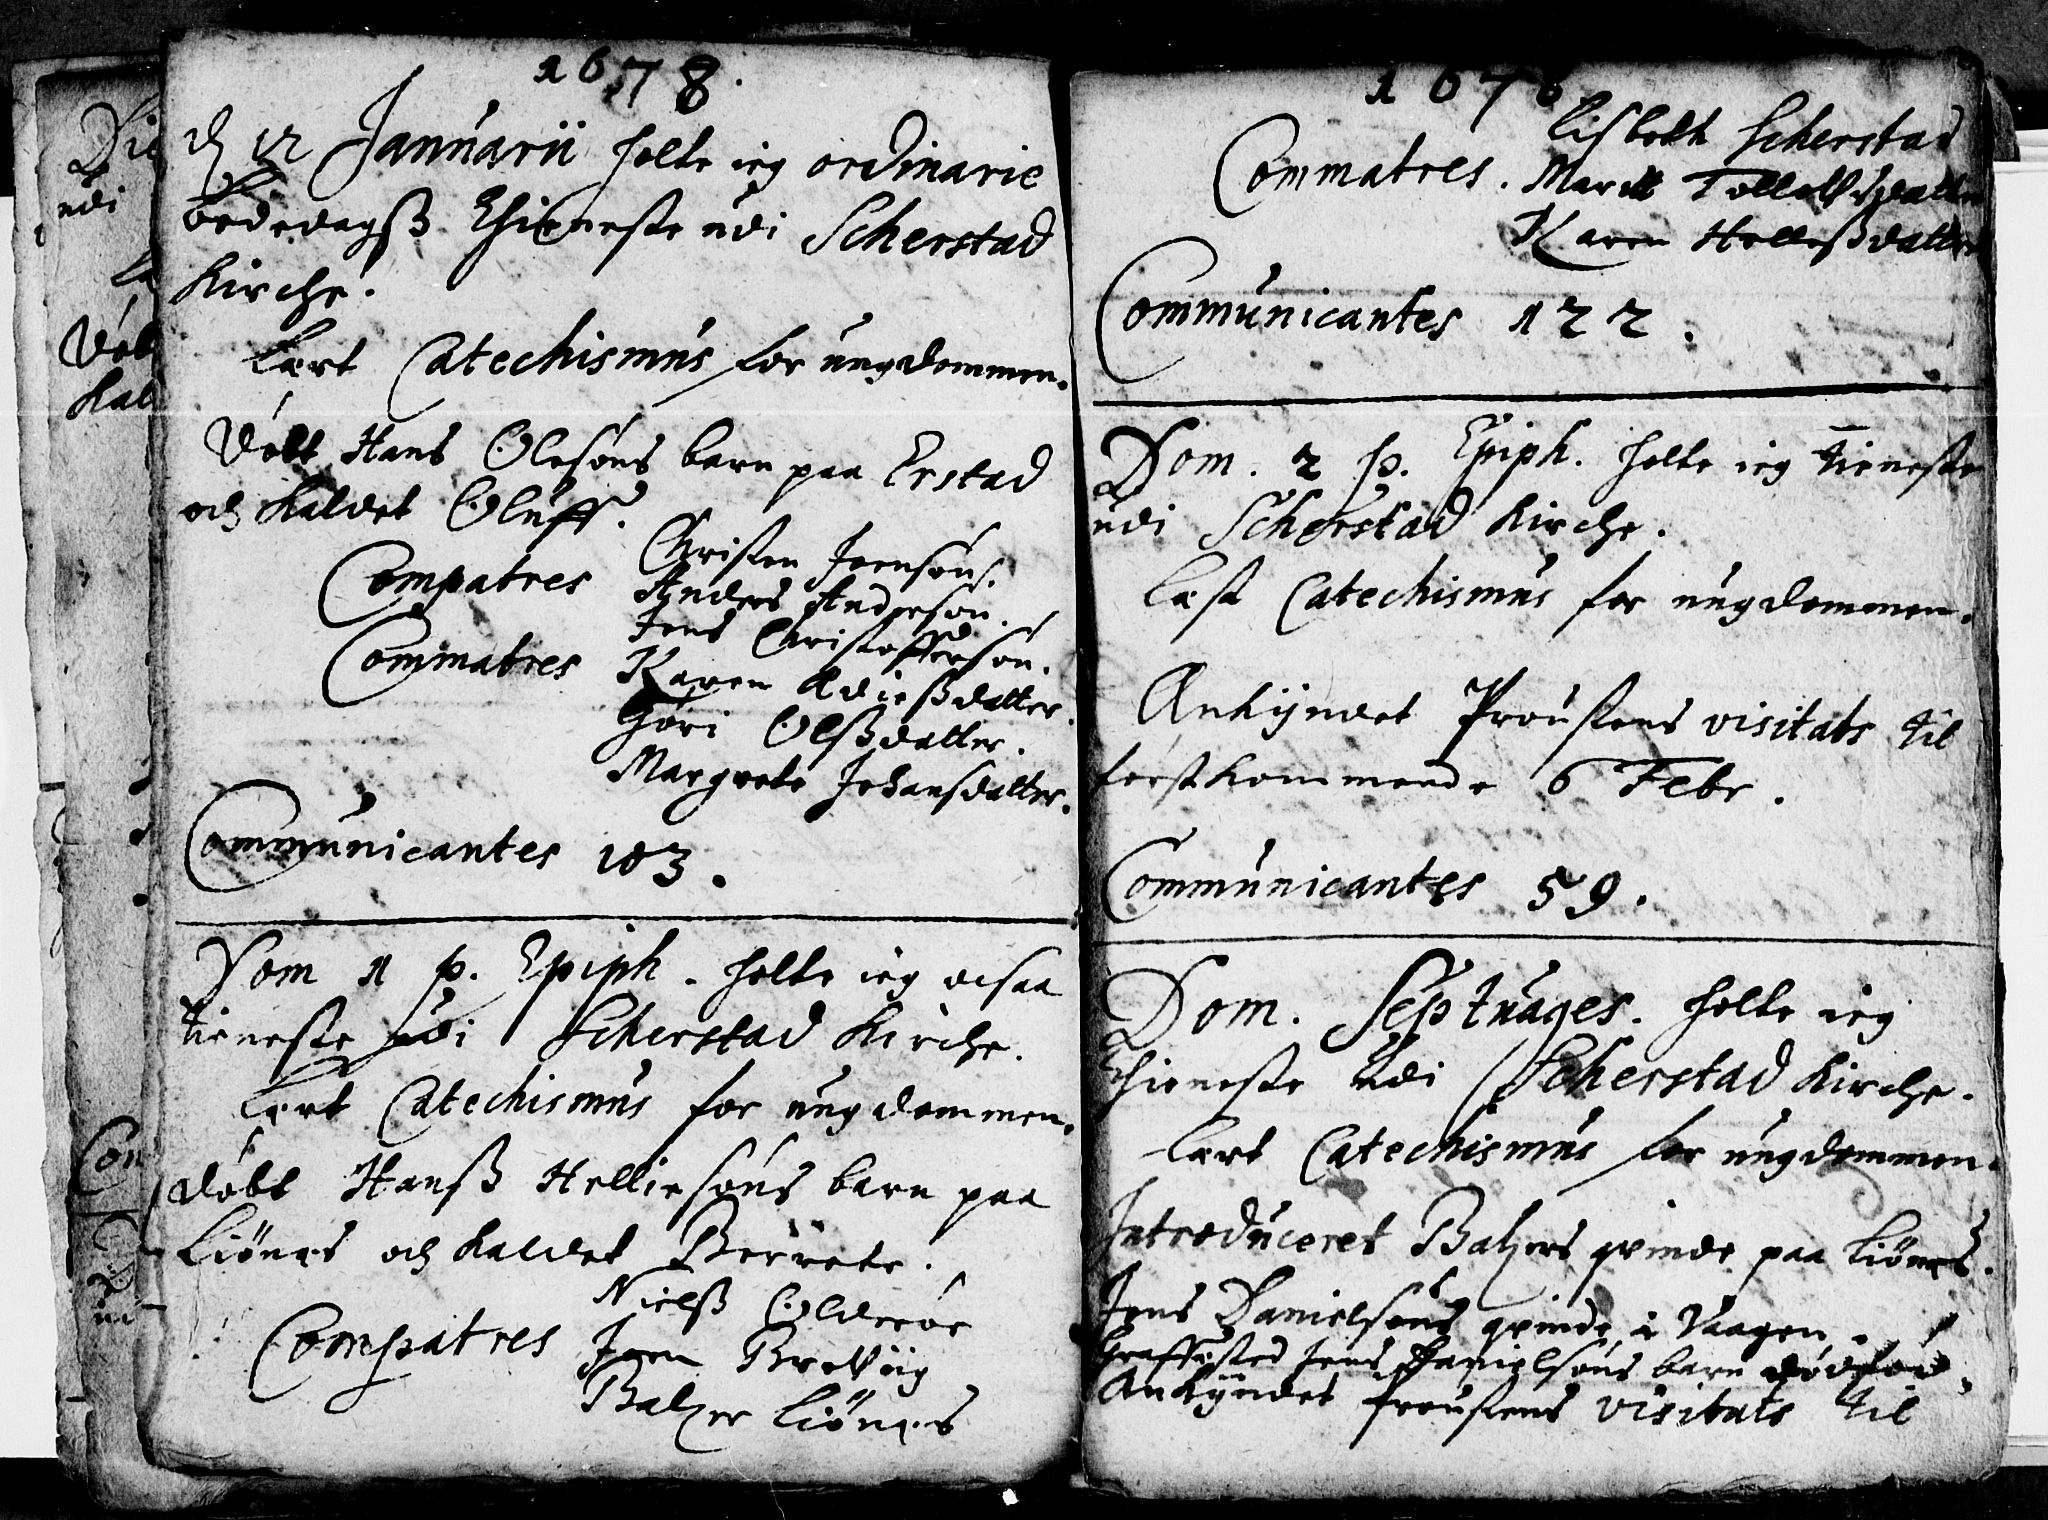 1678.
d 12 Januarii holte ieg ordinarie
bededagß Thieneste udi Scherstad
Kirche.
Lært Catechismus for ungdommen.
Döbt Hans Olesöns barn paa Erstad
och kaldet Oluff.
Compatres Christen Joensön.
Anders Anderson.
Jens Christofferson.
Commatres Karen Adießdatter.
Göri Olßdatter.
Margrete Johansdatter.
Communicantes 103.
Dom 1 p. Epiph. holte ieg ocsaa
tieneste udi Scherstad Kirche.
Lært Catechismus for ungdommen.
Döbt Hanß Helliesöns barn paa
Liönes och kaldet Berrete.
Compatres Nielß Olderöe
Joen Brevüig
Balzer Liönes
1678
Lisbeth Scherstad
Commatres. Marit Tollefsdatter
Karen Helleßdatter
Communicantes 122.
Dom. 2 p. Epiph. holte ieg tieneste
udi Scherstad Kirche.
Læst Catechismus for ungdommen.
Ankyndet Proustens visitats til
förstkommende 6 Febr.
Communicantes 59.
Dom. Septuages. holte ieg
Thieneste udi Scherstad Kirche.
Lært Catechismus for ungdommen.
Introduceret Balzers qvinde paa Liönes.
Jens Danielsöns qvinde i Vaagen.
Graffästed Jens Danielsöns barn dödföd.
Ankyndet proustens visitats til
Die
udi
Döb
Kal
Com
D
ud